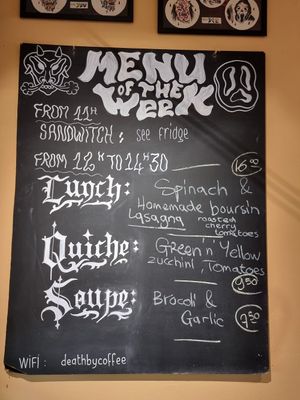 MENU
OF THE
WEEK
FROM 11H
SANDWITCH : see fridge
FROM 12H TO 14H30
16.00
Lunch: Spinach &
Homemade boursin
Lasagna roasted
cherry
tomatoes
Quiche: Green 'n' Yellow
zucchini, Tomatoes
9.50
Soupe: Brocoli &
Garlic
7.50
WiFi : deathbycoffee